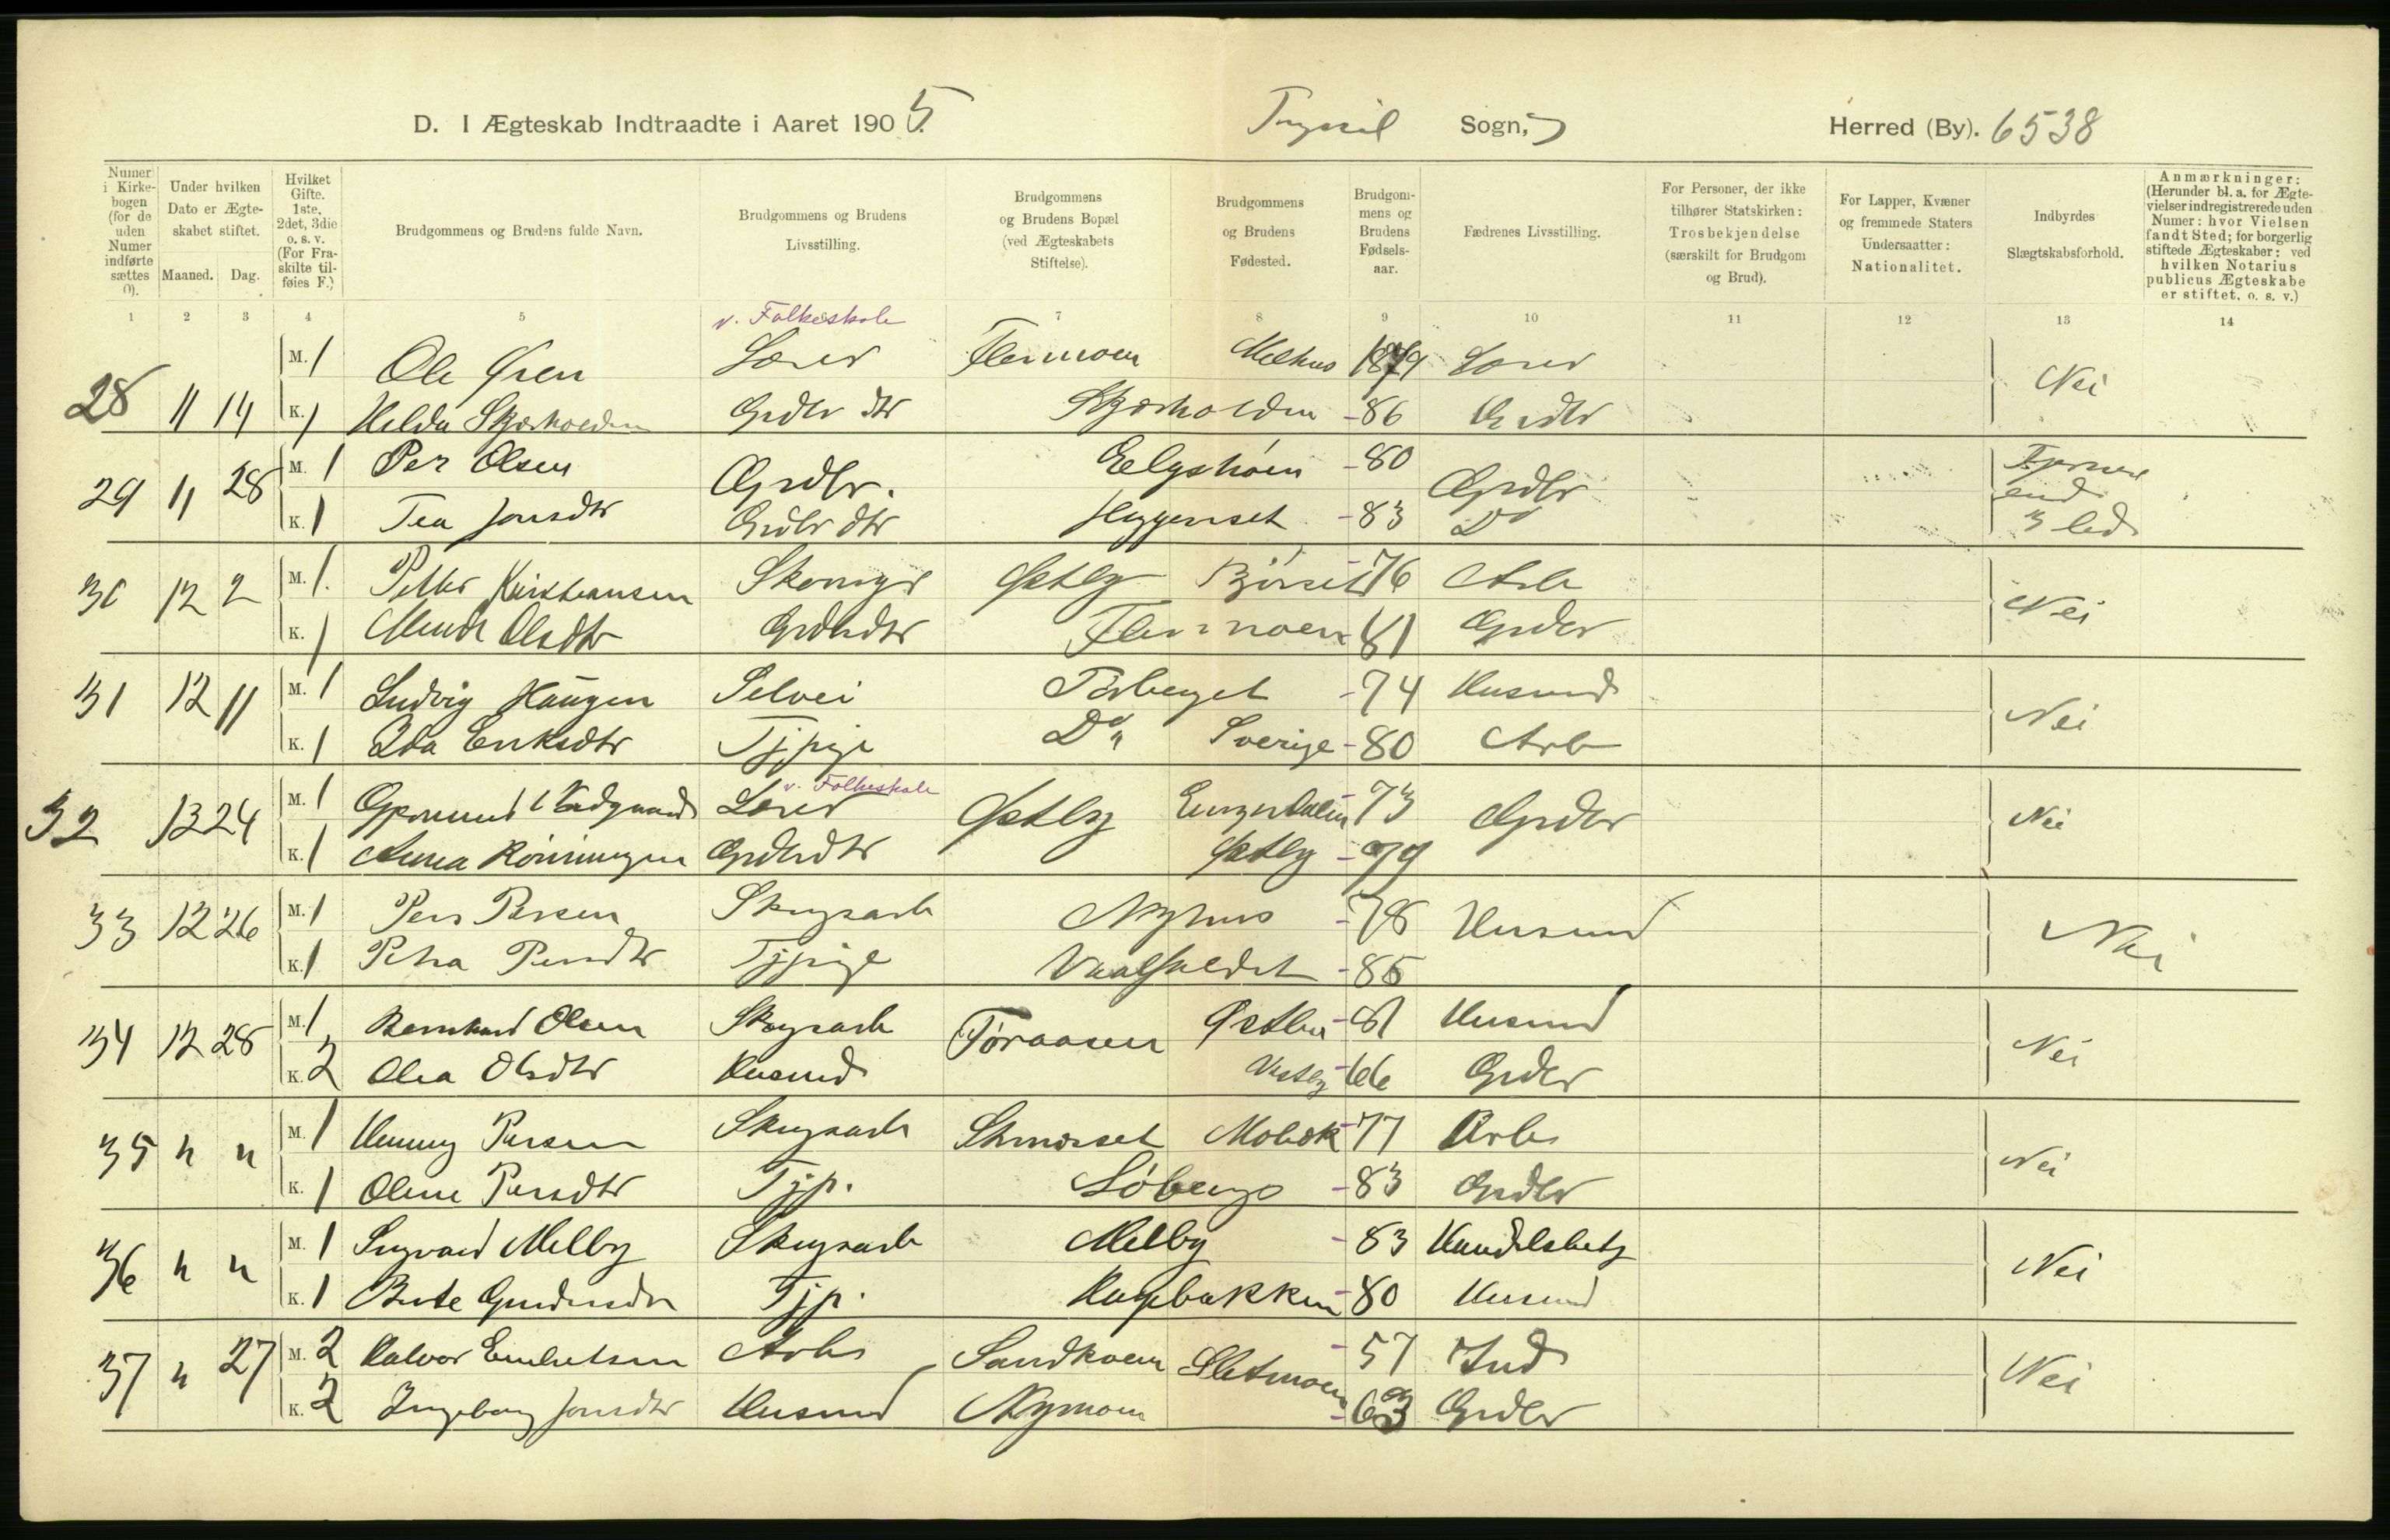 D. I Ægteskab Indtraadte i Aaret 1905. Trysil Sogn, Herred (By). 6538
Numer i Kirkebogen (for de uden Numer indførte sættes 0).
Under hvilken Dato er Ægteskabet stiftet.
Maaned. Dag.
Hvilket Gifte. 1ste, 2det, 3die o. s. v. (For Fraskilte tilføies F.)
Brudgommens og Brudens fulde Navn.
Brudgommens og Brudens Livsstilling.
Brudgommens og Brudens Bopæl (ved Ægteskabets Stiftelse).
Brudgommens og Brudens Fødested.
Brudgommens og Brudens Fødselsaar.
Fædrenes Livsstilling.
For Personer, der ikke tilhører Statskirken: Trosbekjendelse (særskilt for Brudgom og Brud).
For Lapper, Kvæner og fremmede Staters Undersaatter: Nationalitet.
Indbyrdes Slægtskabsforhold.
Anmærkninger: (Herunder bl. a. for Ægtevielser indregistrerede uden Numer: hvor Vielsen fandt Sted; for borgerlig stiftede Ægteskaber: ved hvilken Notarius publicus Ægteskabe er stiftet, o. s. v.)
1 2 3 4 5 7 8 9 10 11 12 13 14
v. Folkeskole
28 11 14 M. 1 Ole Øren Lærer Flermoen Melhus 1879 Lærer Nei
K. 1 Hilda Skjærholden Grdbr dtr Skjærholden -86 Grdbr
29 11 28 M. 1 Per Olsen Grdbr. -80 Grdbr Fjernere end 3 led
K. 1 Tea Jonsdtr Grdbr dtr -83 Do
30 12 2 M. 1 Petter Kristiansen Skomgr Østby 76 Arb Nei
K. 1 Olsdtr Grdbrdtr Flermoen 81 Grdbr
31 12 11 M. 1 Ludvig Haugen Selvei -74 Husmd Nei
K. 1 Ida Eriksdtr Tjpige Do Sverige -80 Arb
v. Folkeskole
32 12 24 M. 1 Lærer Østby 73 Grdbr Nei
K. 1 Anna Rønningen Grdbrdtr Østby -79
33 12 26 M. 1 Per Persen Skogsarb Nyhus -78 Husmd Nei
K. 1 Petra Persdtr Tjpige -85
34 12 28 M. 1 Bernhard Olsen Skogsarb Tøraasen Østby -81 Husmd Nei
K. 2 Olea Olsdtr Husmd Vestby 66 Grdbr
35 " " M. 1 Persen Skogsarb -77 Arb Nei
K. 1 Oline Persdtr Tjp. -83 Grdbr
36 " " M. 1 Sigvard Melby Skogsarb Melby -83 Handelsbetj Nei
K. 1 Berte Gundersdtr Tjp. Hagebakken -80 Husmd
37 " 27 M. 2 Halvor Embretsen Arb Sandkoen Sletmoen -57 Ind Nei
K. 2 Ingeborg Jonsdtr Husmd Nymoen -63 Grdbr